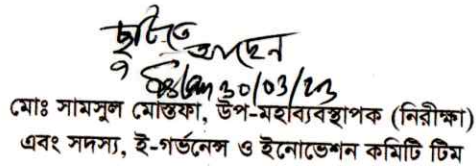 ছুটিতে
আছেন
30/03/23
মোঃ সামসুল মোস্তফা, উপ-মহাব্যবস্থাপক (নিরীক্ষা)
এবং সদস্য, ই-গর্ভনেন্স ও ইনোভেশন কমিটি টিম